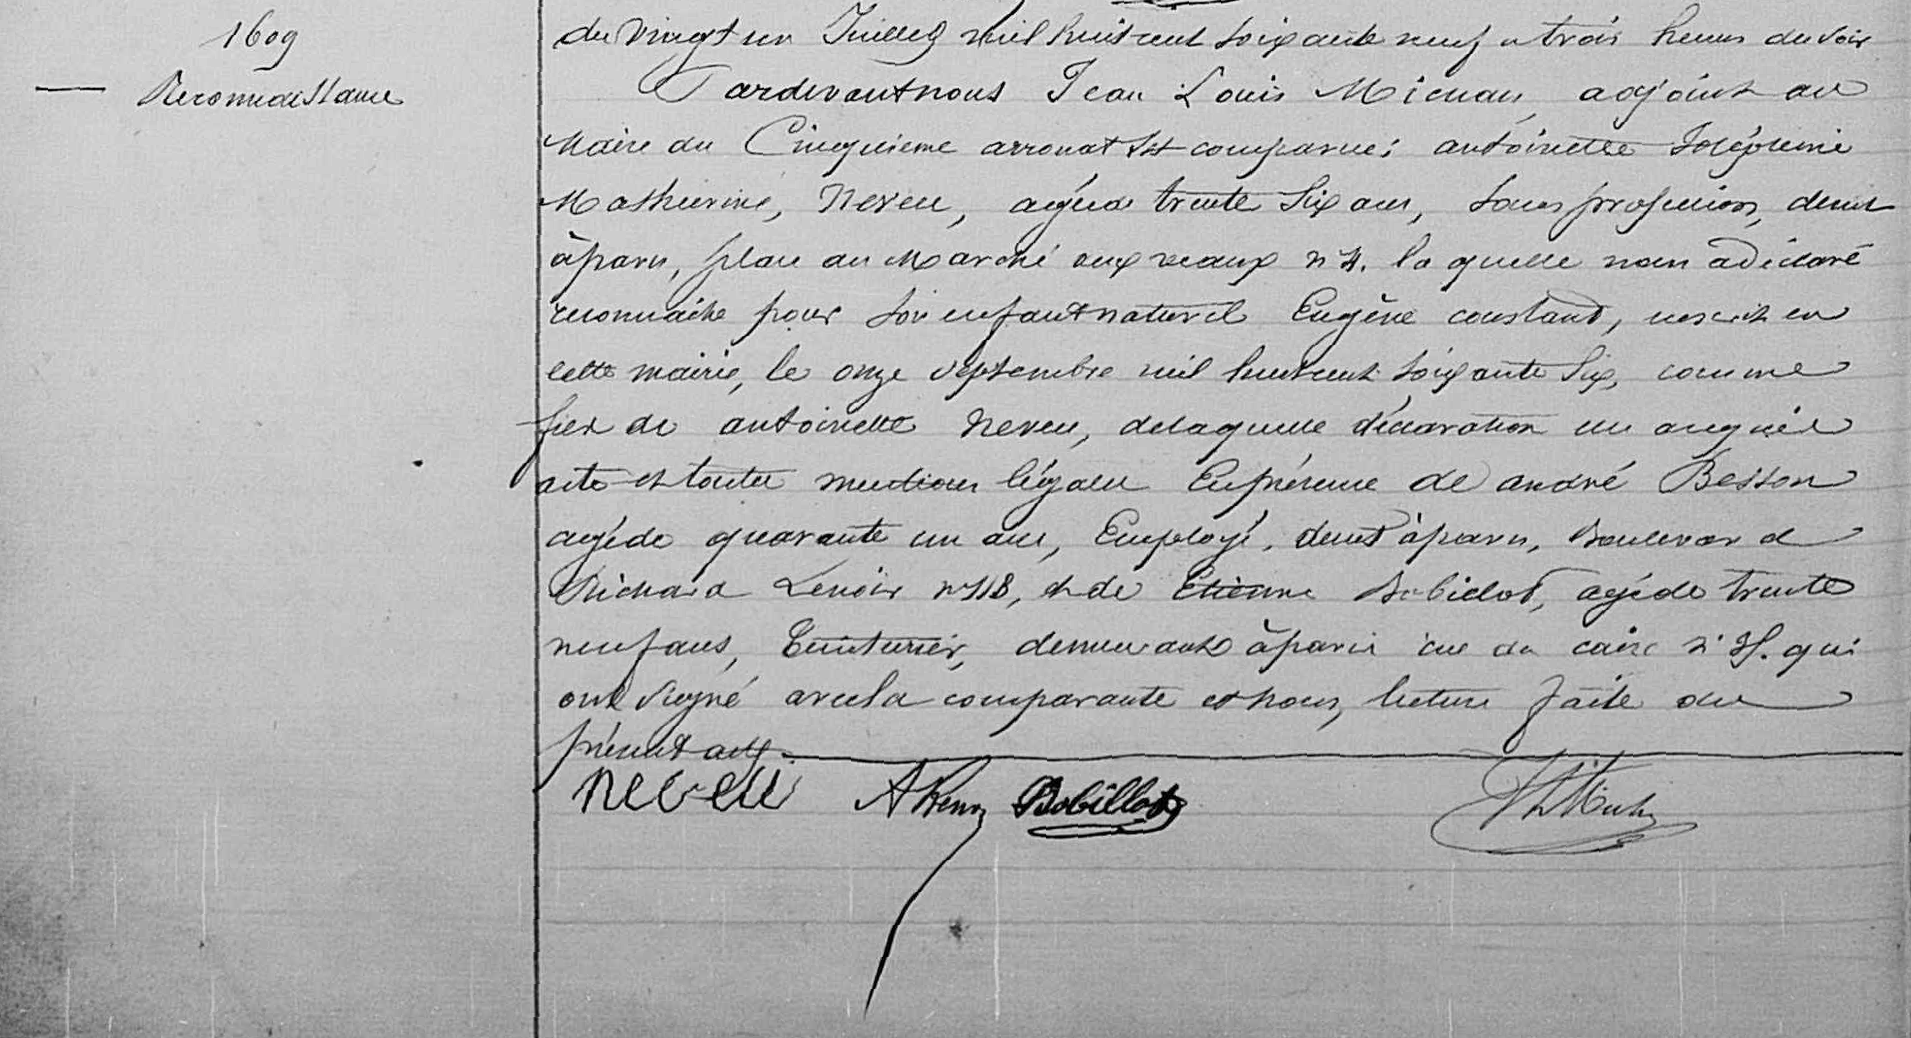 1609
Reconnaissance
du vingt un Juillet mil huit cent soixante neuf a trois heures du soir
Pardevant nous Jean Louis adjoint au
Maire du Cinquième arrondt est comparue: antoinette Joséphine
Mathurine, Neveu, agée de trente six ans, sans profession, demt
à paris, place au Marché aux veaux n° 4. la quelle nous a déclaré
reconnaitre pour son enfant naturel Eugène constant, inscrit en
cette mairie, le onze septembre mil huit cent soixante six, comme
fils de antoinette Neveu, de laquelle déclaration un acquiel
acte et toutes mentions légales En présence de andré Besson
agé de quarante un ans, Employé, demt à paris, Boulevard
Richard Lenoir n° 118, et de Etienne Bobillot, agé de trente
neuf ans, Teinturier, demeurant à paris rue du caire qui
ont signé avec la comparante et nous, lecture faite du
présent acte.
neveu Bobillot